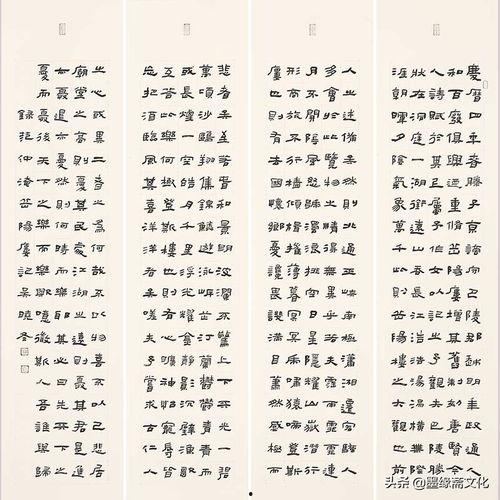 慶曆四年春滕子京謫守巴陵郡越明年政通人
和百廢俱興乃重修岳陽樓增其舊制刻唐賢今
人詩賦於其上屬予作文以記之予觀夫巴陵勝
狀在洞庭一湖銜遠山吞長江浩浩湯湯橫無際
涯朝暉夕陰氣象萬千此則岳陽樓之大觀也前
人之述備矣然則北通巫峽南極瀟湘遷客騷人
多會於此覽物之情得無異乎若夫霪雨霏霏連
月不開陰風怒號濁浪排空日星隱曜山岳潛
形商旅不行檣傾楫摧薄暮冥冥虎嘯猿啼登斯
樓也則有去國懷鄉憂讒畏譏滿目蕭然感極而
悲者矣至若春和景明波瀾不驚上下天光一碧
萬頃沙鷗翔集錦鱗游泳岸芷汀蘭鬱鬱青青而
或長煙一空皓月千里浮光躍金靜影沉璧漁歌
互答此樂何極登斯樓也則有心曠神怡寵辱皆
忘把酒臨風其喜洋洋者矣嗟夫予嘗求古仁人
之心或異二者之為何哉不以物喜不以己悲居
廟堂之高則憂其民處江湖之遠則憂其君是進
亦憂退亦憂然則何時而樂耶其必曰先天下之
憂而憂後天下之樂而樂歟噫微斯人吾誰與歸
錄范仲淹岳陽樓記吳曉冬
头条@墨缘斋文化